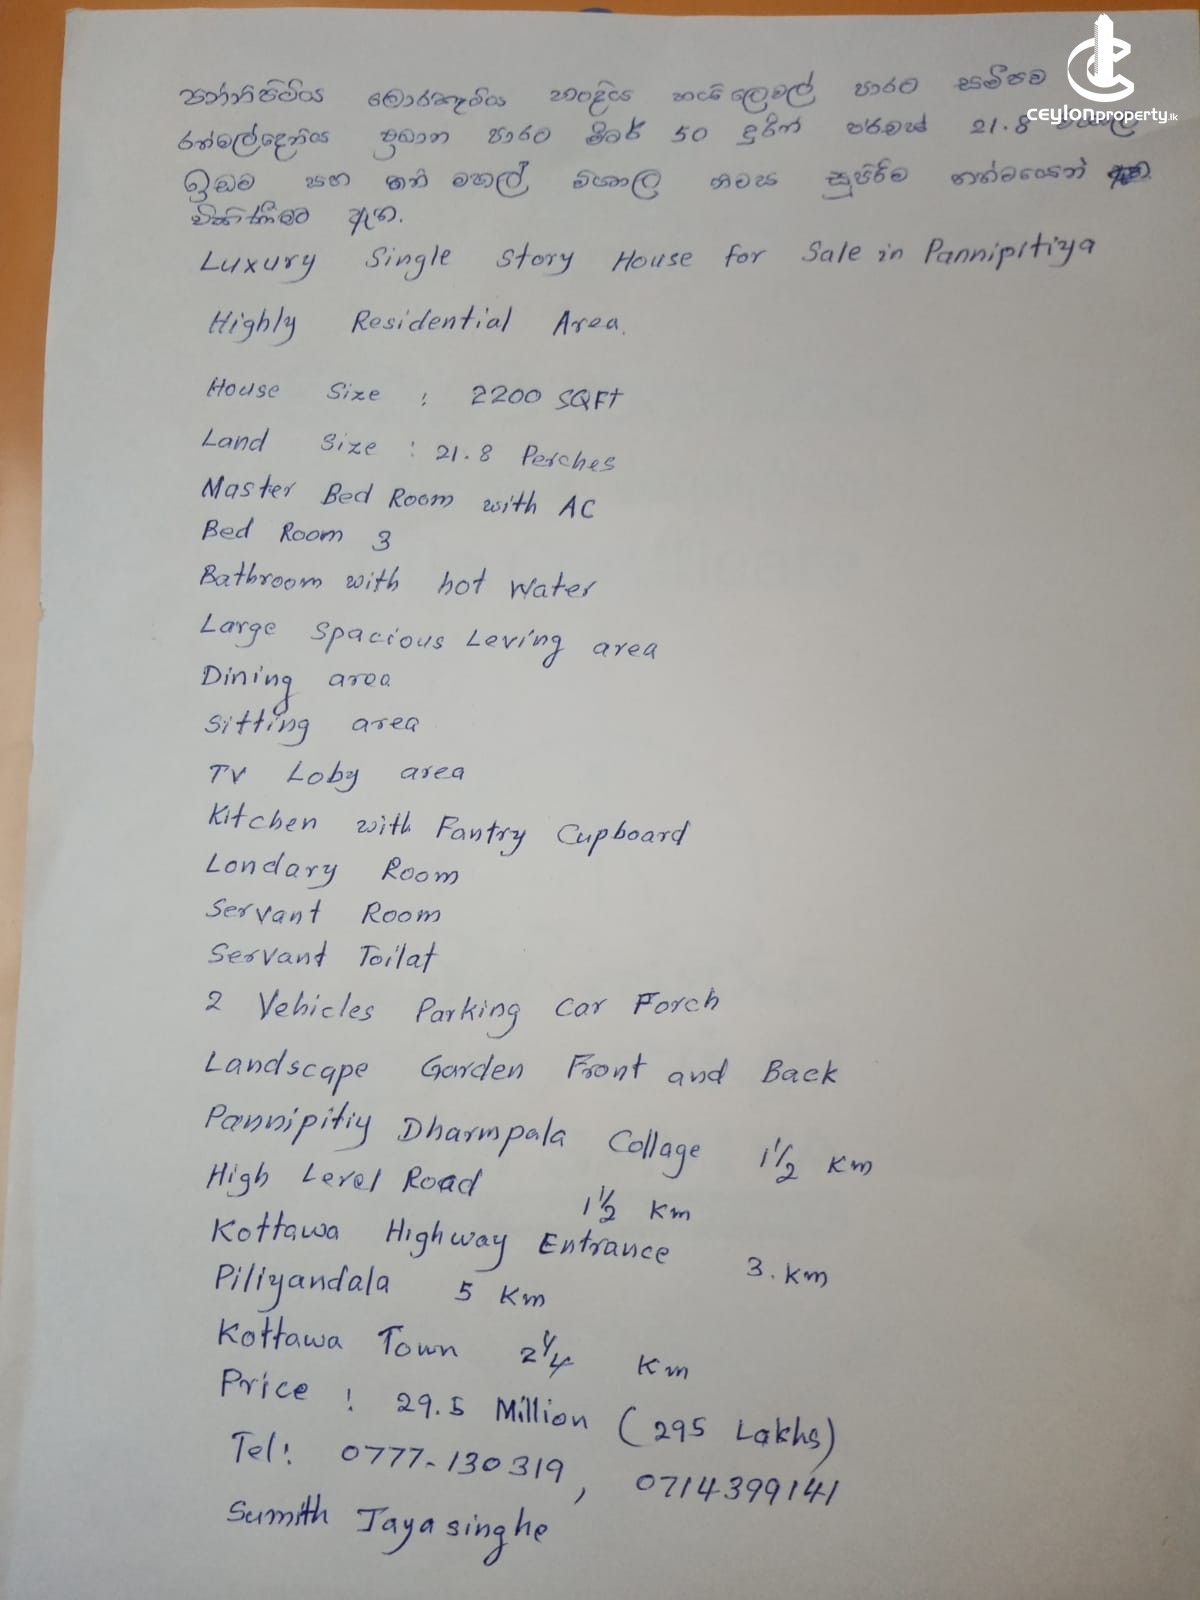 පන්නිපිටිය බොරඇල්ල හංදිය හයිලෙවල් පාරට සමීපව
රත්මල්දෙනිය ප්‍රධාන පාරට මීටර් 50 දුරින් පර්චස් 21.8 විශාල
ඉඩම සහ තනි මහල් විශාල නිවස සුපිරිම තත්වයෙන් ඇත
විකිණීමට ඇත.
Luxury Single Story House for Sale in Pannipitiya
Highly Residential Area.
House Size : 2200 SQFt
Land Size : 21.8 Perches
Master Bed Room with AC
Bed Room 3
Bathroom with hot Water
Large Spacious Leving area
Dining area
Sitting area
TV Loby area
Kitchen with Fantry Cupboard
Londary Room
Servant Room
Servant Toilat
2 Vehicles Parking Car Forch
Landscape Garden Front and Back
Pannipitiy Dharmpala Collage 1 1/2 Km
High Level Road 1 1/2 Km
Kottawa Highway Entrance 3. Km
Piliyandala 5 Km
Kottawa Town 2 1/4 Km
Price : 29.5 Million (295 Lakhs)
Tel: 0777-130319, 0714399141
Sumith Jayasinghe
ceylonproperty.lk